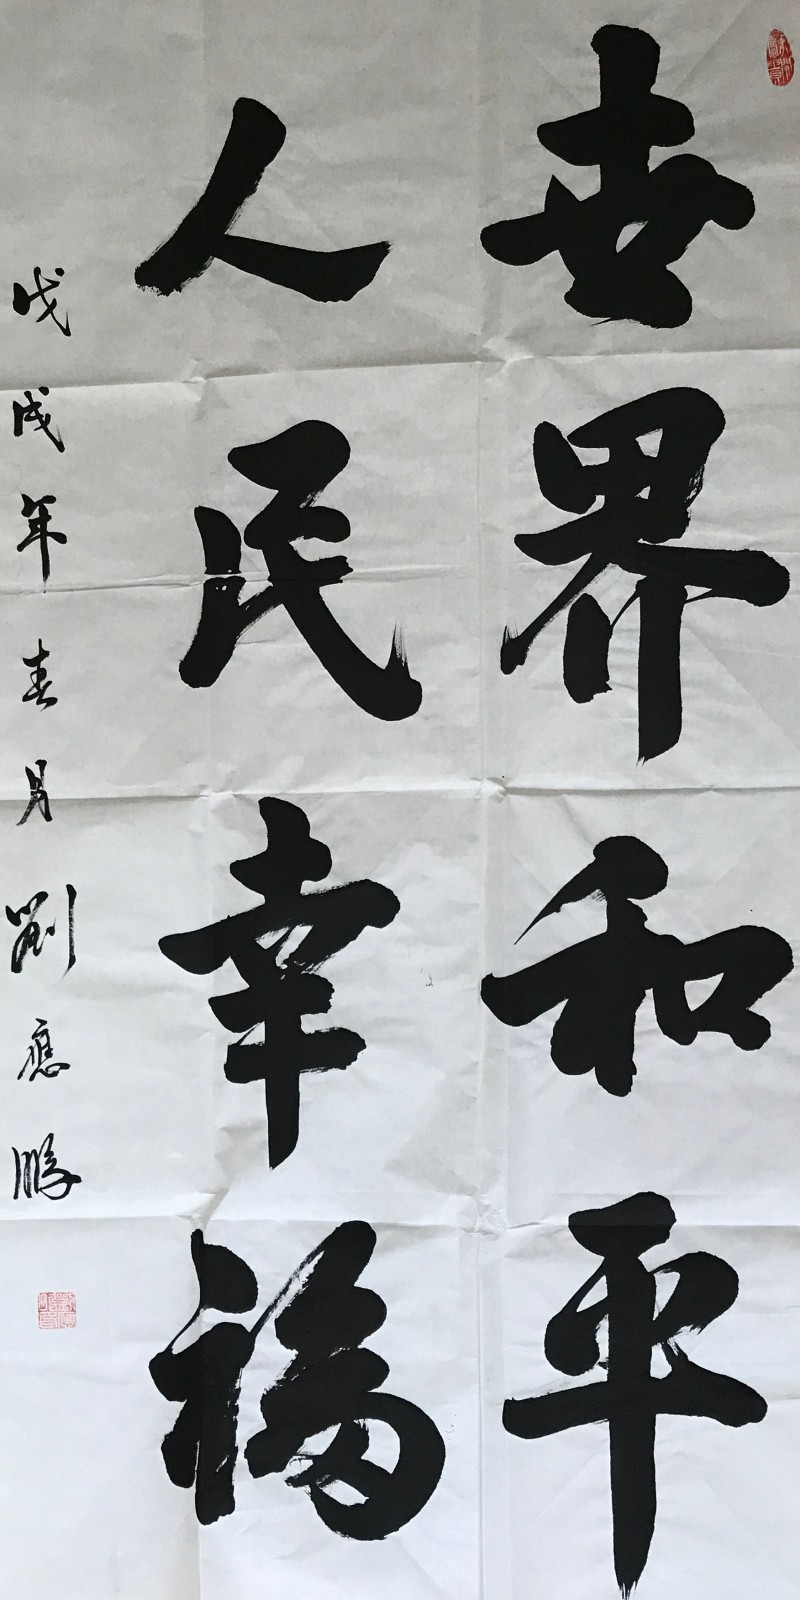 世界和平
人民幸福
戊戌年春月劉應鵬